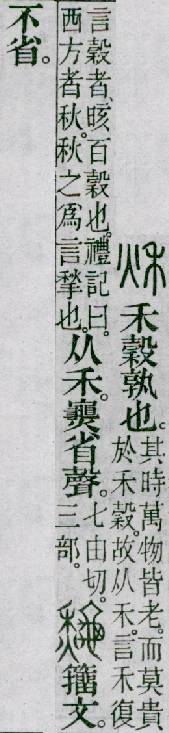 秌 禾穀孰也。
其時萬物皆老。而莫貴
於禾穀。故从禾。言禾復
言穀者、晐百穀也。禮記曰。
西方者秋。秋之爲言揫也。
从禾。𤒅省聲。
七由切。
三部。
籒文。
不省。